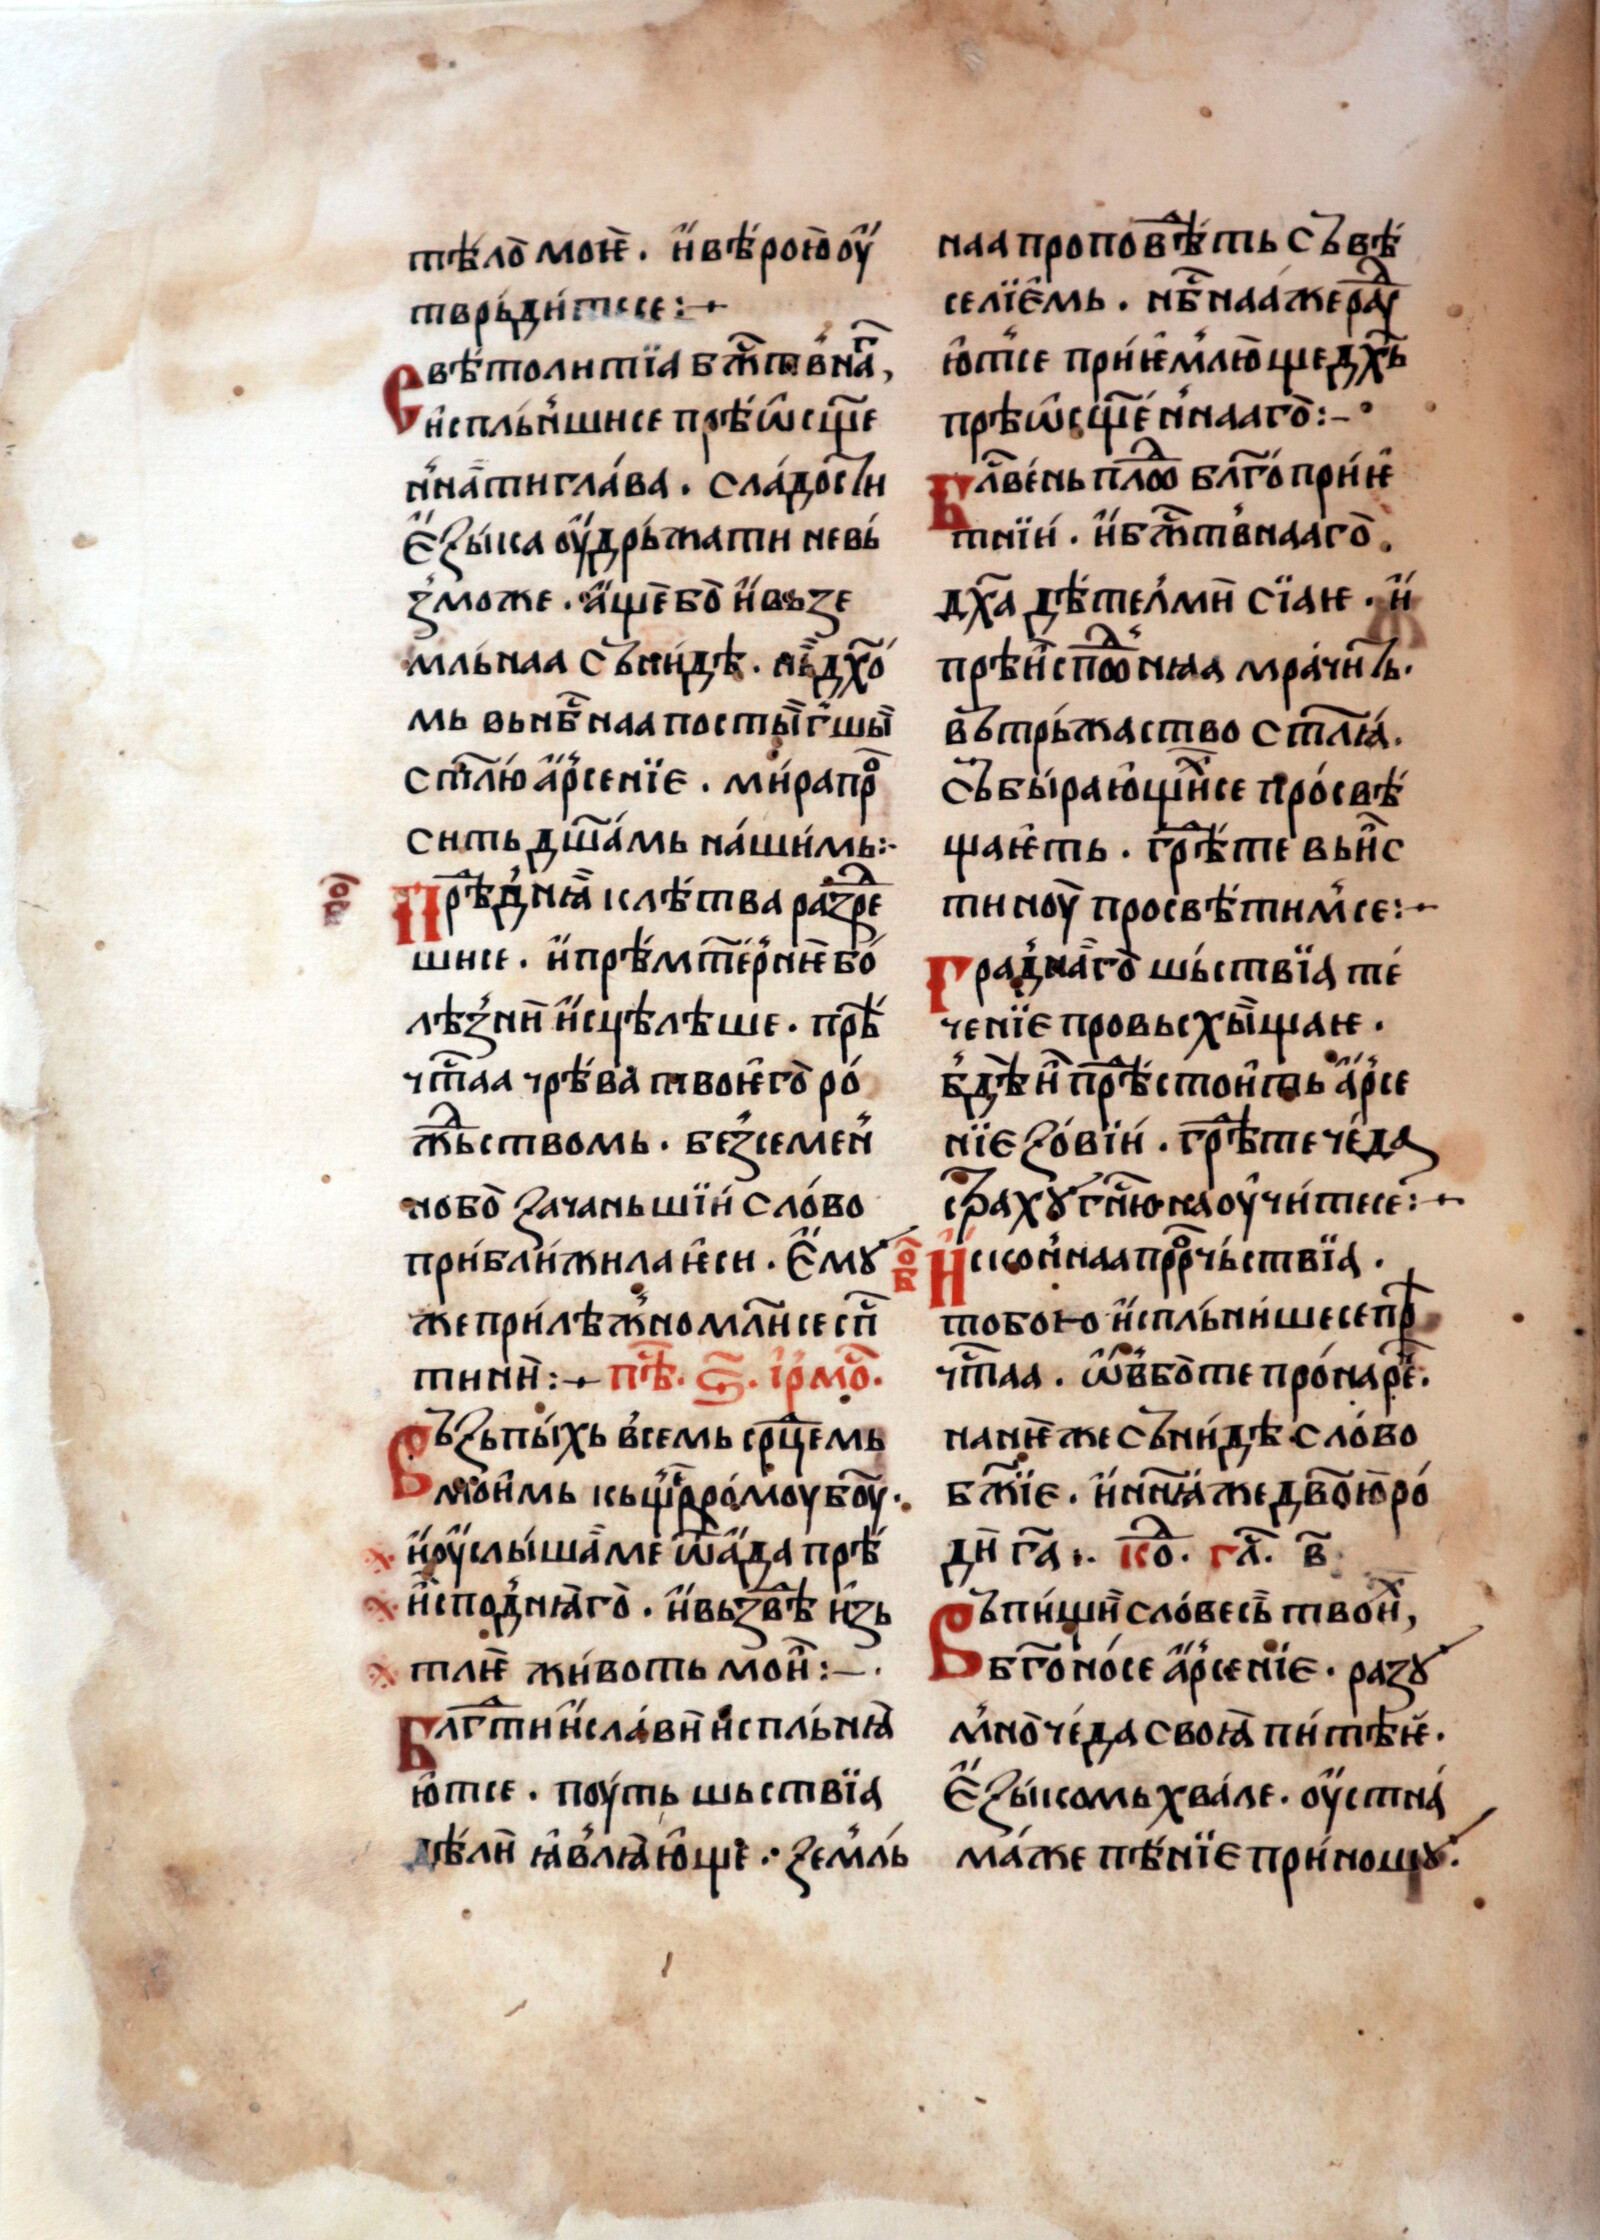 тѣ́ло̀ моѥ̀ . и҆̀вѣ́рою̀оу҆̀
тврь́ди́тесе :·
Свѣ́толитїа бж҃тв́наꙗ,
и҆спль́н̾шисе прѣѡ҆сщ҃е
н̾на̀тиглава . сла́дости
є҆̀ꙁы́ка оу҆̀дрь́жати невь́
ꙁ̾може . а҆̀щѐбо̀ и҆̀вьꙁе
мльнаа съни́дѣ . нь̀дх҃о́
мь вьнб҃наа посты̀г̾шы̀
ст҃лю́ а҆̀рсенїе . ми́рапро
сить дш҃а́мь на́ши́мь :·
Прѣ́д̾нꙗ̀ клѣ́тва раꙁрѣ
шисе . и҆̀прѣ́мт҃е́р̾нѥ̀бо́
лѣ́ꙁ̾нѝ и҆̀сцѣ́лѣше . прѣ́
чт҃аа чрѣ́ва твоѥ҆го̀ ро́
ж̾ьствомь . беꙁ̾семен̾
нобо̀ ꙁачаньшїи́ сло́во
при́бли́жилаѥ҆си . є҆̀мꙋ
жеприлѣж̾номл҃исесп҃
тинѝ :· пѣ҃. ѕ҃. і҆рмо҃.
Въꙁьпы́хь в̾семь срц҃емь
мои҆мь кьще́дро́моубо҃у .
и҆̀оу҆̀слы́ша̀ме ѿа́да прѣ́
и҆̀спо́д̾нꙗ̀го̀ . и҆̀вьꙁвѣ̀ и҆ꙁь
тлѥ̀ жи́воть мои҆̀ :–.
Блг҃ти и҆̀сла́вѝ и҆спль́нꙗ̀
ю҆тсе . поу́ть шьствїа
дѣ́лѝ ꙗ҆в̾лꙗ̀ю҆ще . ꙁем̾ль́
наа проповѣ́ть съвѣ́
селїе҆мь . нб҃наа́жерад
ю҆тсе при́ѥ҆м̾лю̀щедх҃ь
прѣѡ҆сщ҃е́н̾нааго̀ :–
Блв҃е́нь пло̀д блг҃опри́ѥ҆
тнїи́ . и҆̀бж҃тв̾нааго̀
дх҃а дѣ́тел̾мѝ сїаѥ . и҆̀
прѣи҆̀спо̀днꙗа мра́чнь.
въ̀трь́жаство ст҃лꙗ́.
съ̀бы́раю҆щѝхсе про́свѣ́
щаѥ҆ть . гредѣ́те вьи҆̀с
тиноу̀ просвѣ́тим̾се :·
Гра́д̾на̀го̀ шь́ствїа те́
ченїе провьсхы̀щаѥ .
б̾дѣ̀и҆ прѣ́стои҆ть а҆̀рсе
нїе ꙁо́вїи́ . гредѣ́те че́да
страхꙋ гн҃ю наоу҆чи́тесе :·
об И҆̀скон̾наапрро́чьствїа .
тобою и҆спль́ни́шесепрѣ
чт҃аа . ѡ҆̀в̾бо̀те про́наре҃.
нанѥ̀жесъни́дѣ сло́во
бж҃їе . и҆̀нн҃ꙗ́жедв҃о́ю̀ро́
дѝ га҃ :. ко҃. гл҃. в҃
Въпи́щѝ сло́весь̀ твои́х,
бг҃оно́се а҆̀рсенїе . раꙁꙋ
м̾но̀че́да своꙗ̀ пи́тѣѥ̀.
є҆̀ꙁы́комь хва́ле . оу҆̀стна́
ма́же пѣ́нїе при́нощꙋ.